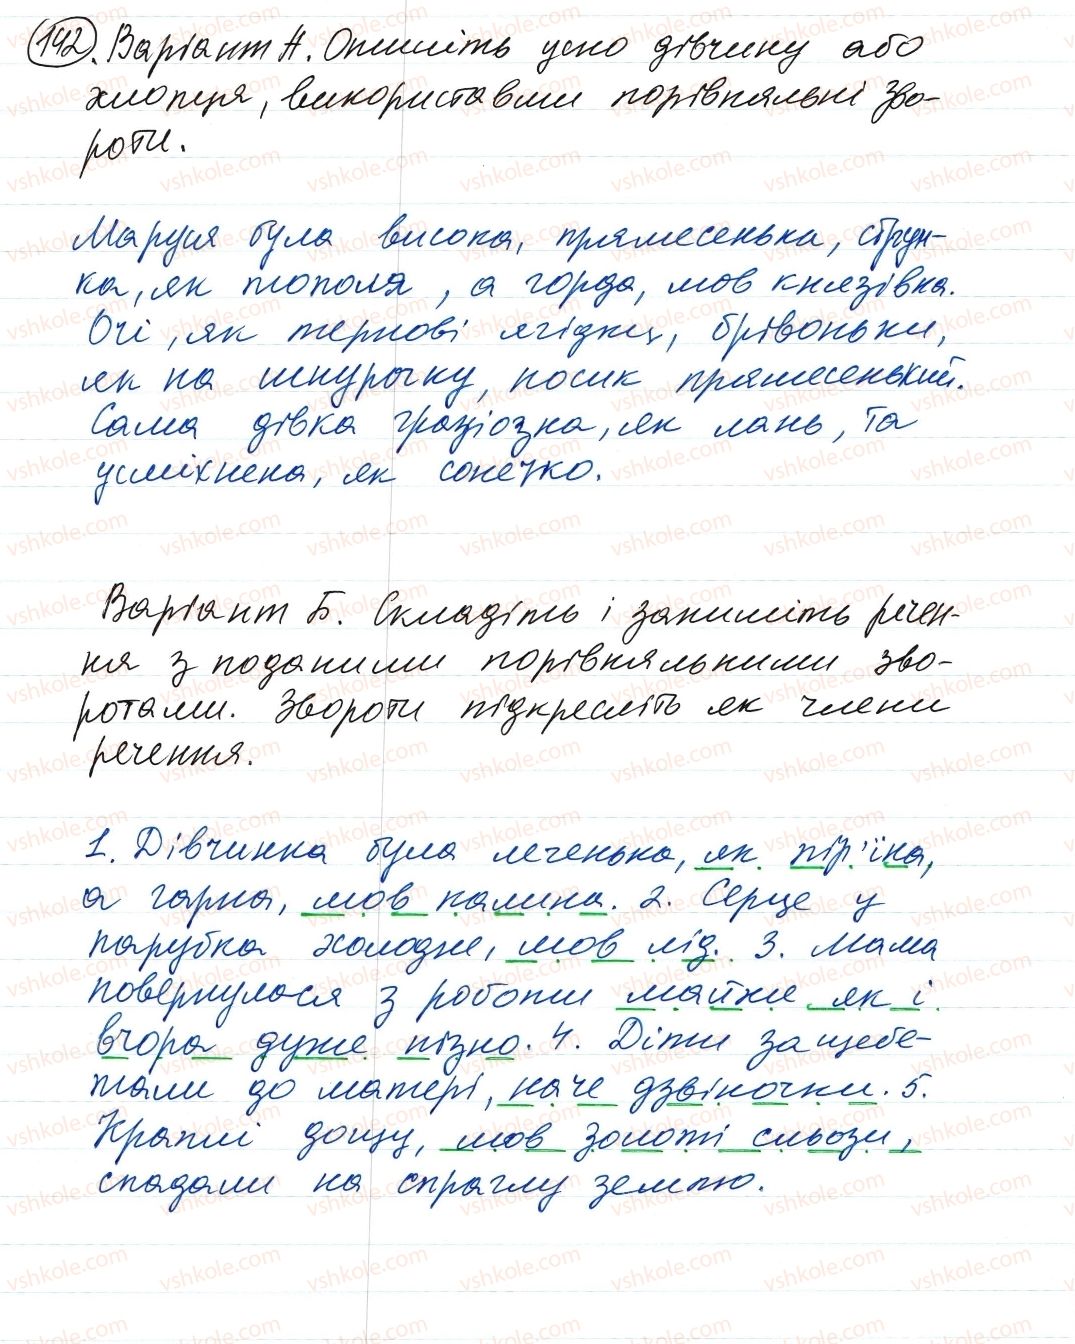 142. Варіант А. Опишіть усно дівчину або
хлопця, використавши порівняльні зво-
роти.
Маруся була висока, прямесенька, струн-
ка, як тополя, а горда, мов князівна.
Очі, як тернові ягідки, брівоньки,
як на шнурочку, носик прямесенький.
Сама дівка граціозна, як лань, та
усміхнена, як сонечко.
Варіант Б. Складіть і запишіть речен-
ня з поданими порівняльними зво-
ротами. Звороти підкресліть як члени
речення.
1. Дівчинка була легенька, як пір'їна,
а гарна, мов калина. 2. Серце у
парубка холодне, мов лід. 3. Мама
повернулася з роботи майже як і
вчора дуже пізно. 4. Діти защебе-
тали до матері, наче дзвіночки. 5.
Краплі дощу, мов золоті сльози,
спадали на спраглу землю.